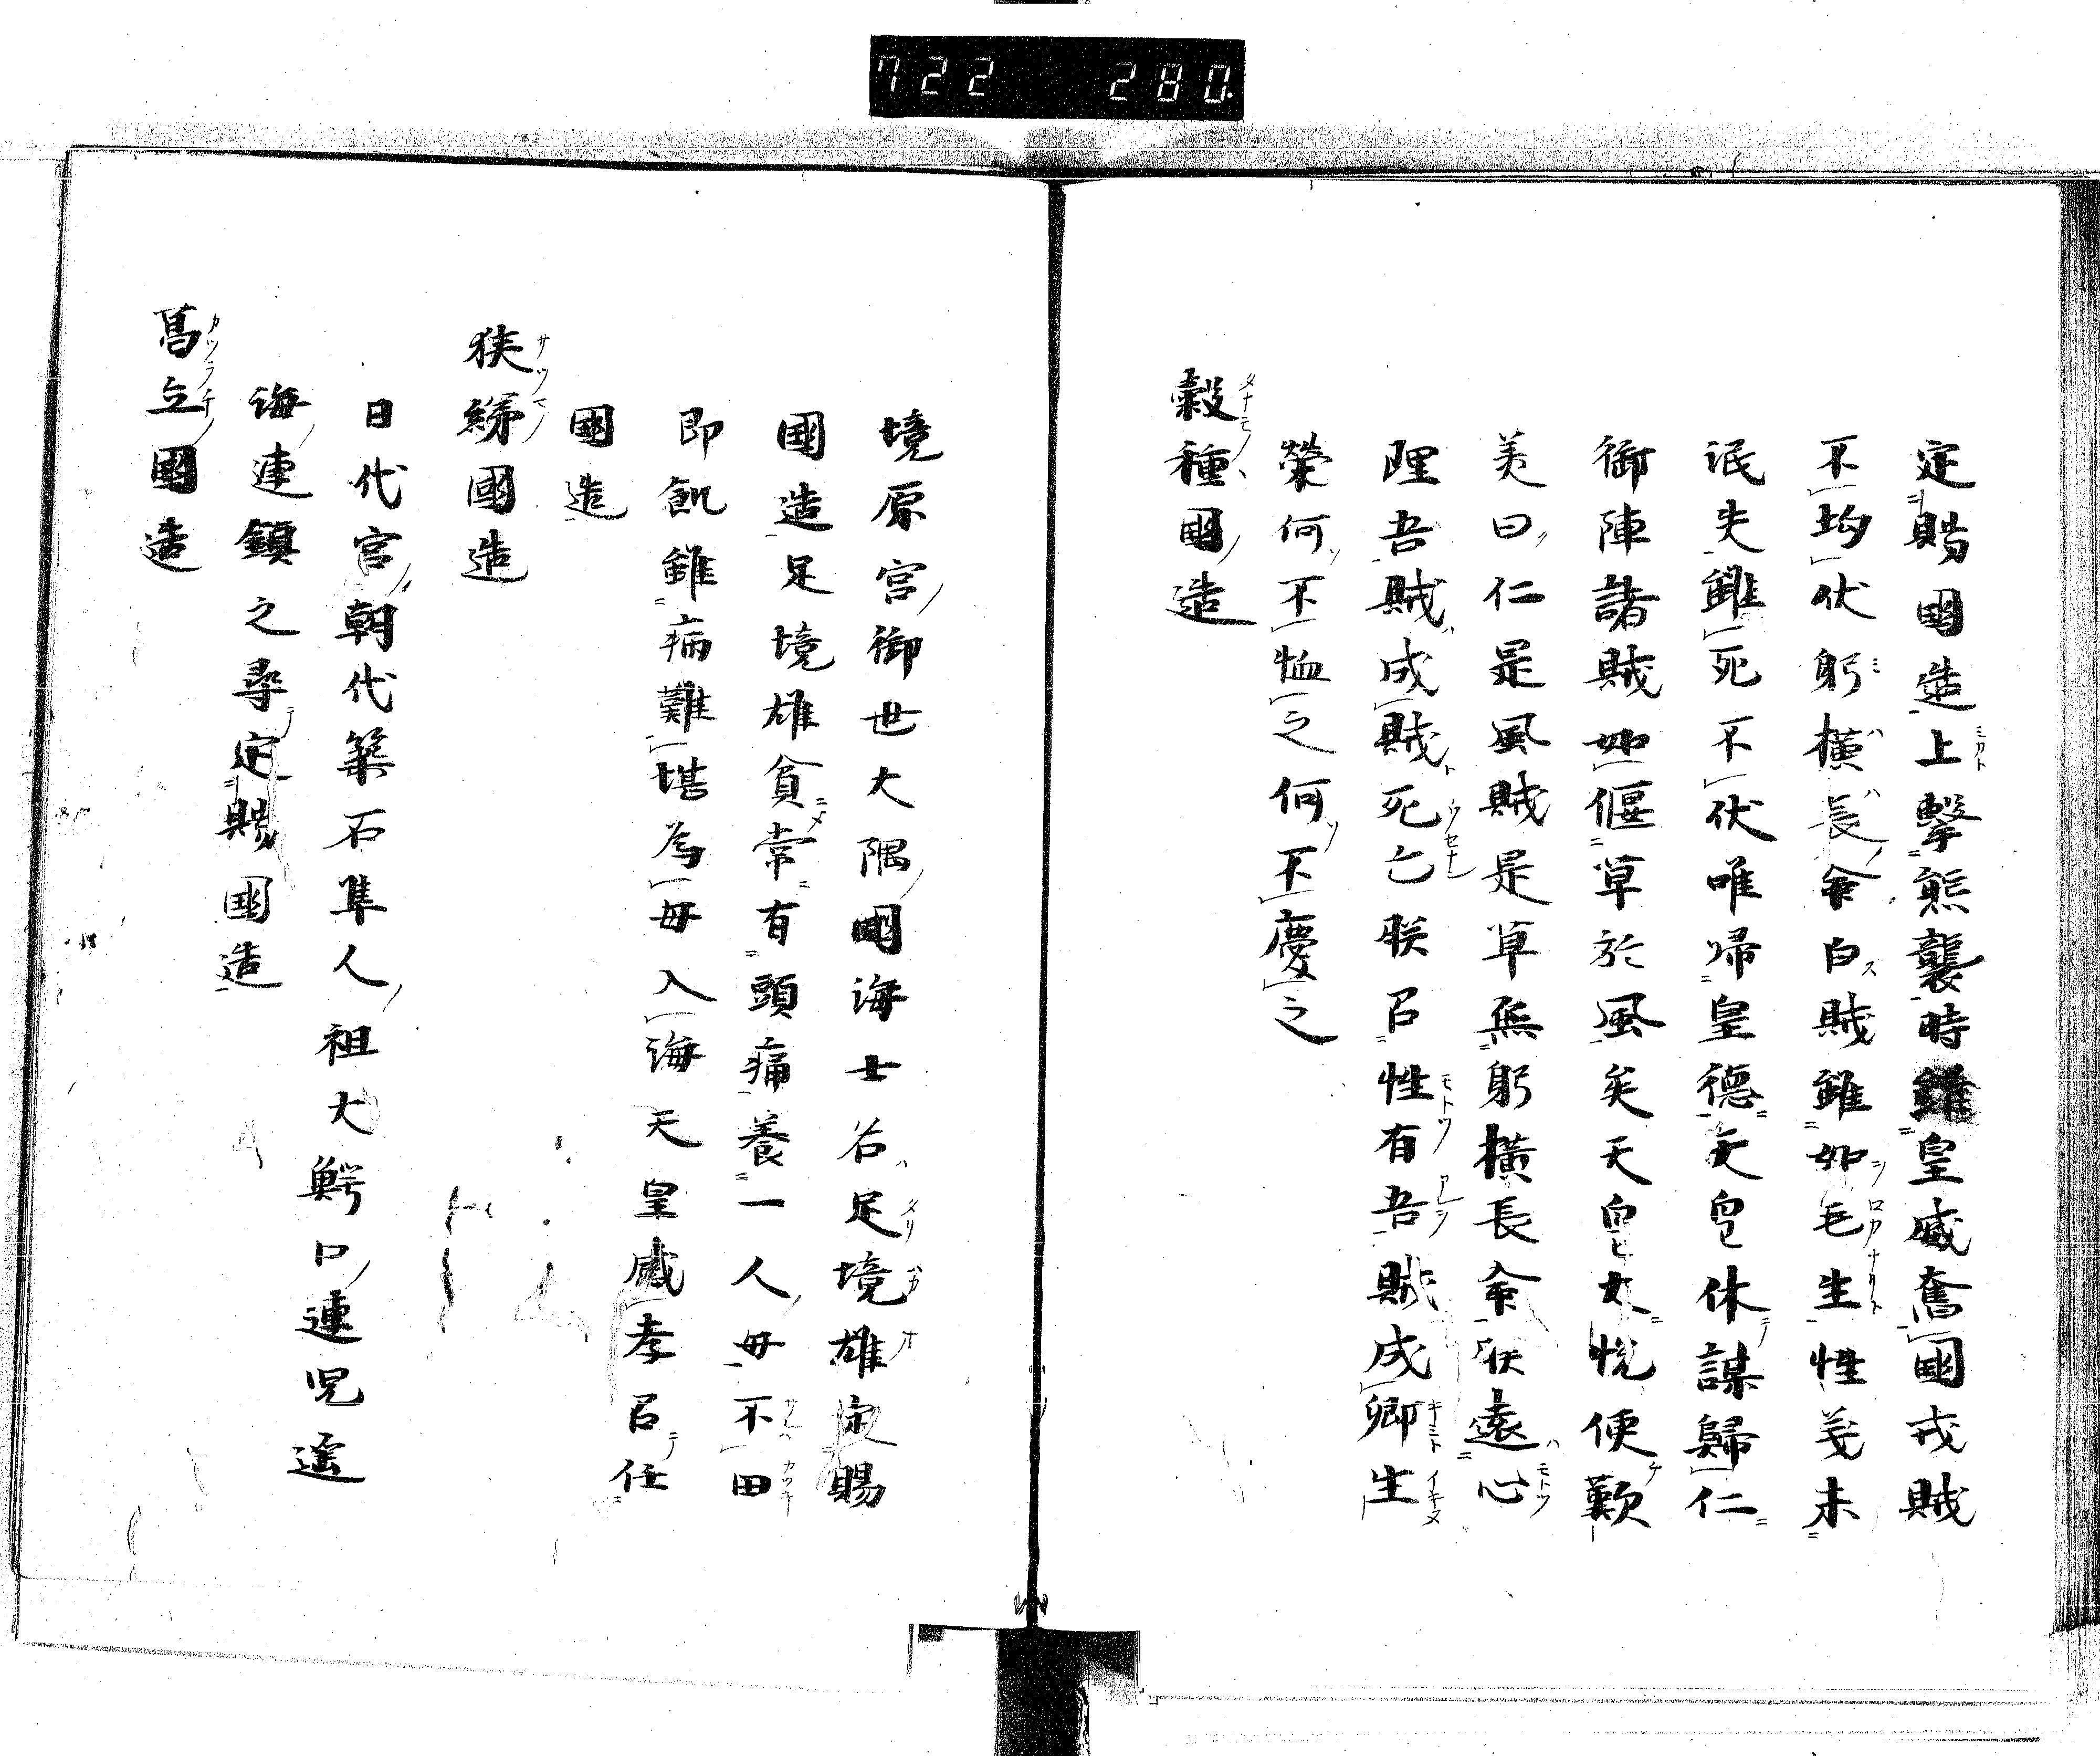 722 280
定賜國造上擊熊襲時雖皇威奮國戎賊
不均伏躬橫長命白賊雖如毛生性美未
泯失雖死不伏唯歸皇德天皇休謀歸仁
御陣諸賊如偃草於風矣天皇大悅便歎
美曰仁是風賊是草無躬橫長命朕遠心
理吾賊成賊死亡朕召性有吾賊成卿生
榮何不恤之何不慶之
穀種國造
境原宮御世大隅國海士名足境雄定賜
國造足境雄貧常有頭痛養一人母不田
即飢雖病難堪為母入海天皇感孝召任
國造
狹綈國造
日代宮朝代築石隼人祖大鰐口連児遙
海連鎮之尋定賜國造
葛立國造